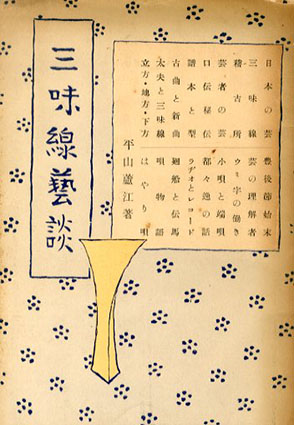 日本の芸 豊後節始末
三味線 芸の理解者
稽古所 ウミ字の働き
芸者の芸 小唄と端唄
口伝秘伝 都々逸の話
譜本と型 ラヂオとレコード
古曲と新曲 廻船と伝馬
太夫と三味線 唄物語
立方・地方・下方 はやり唄
平山蘆江著
三味線藝談